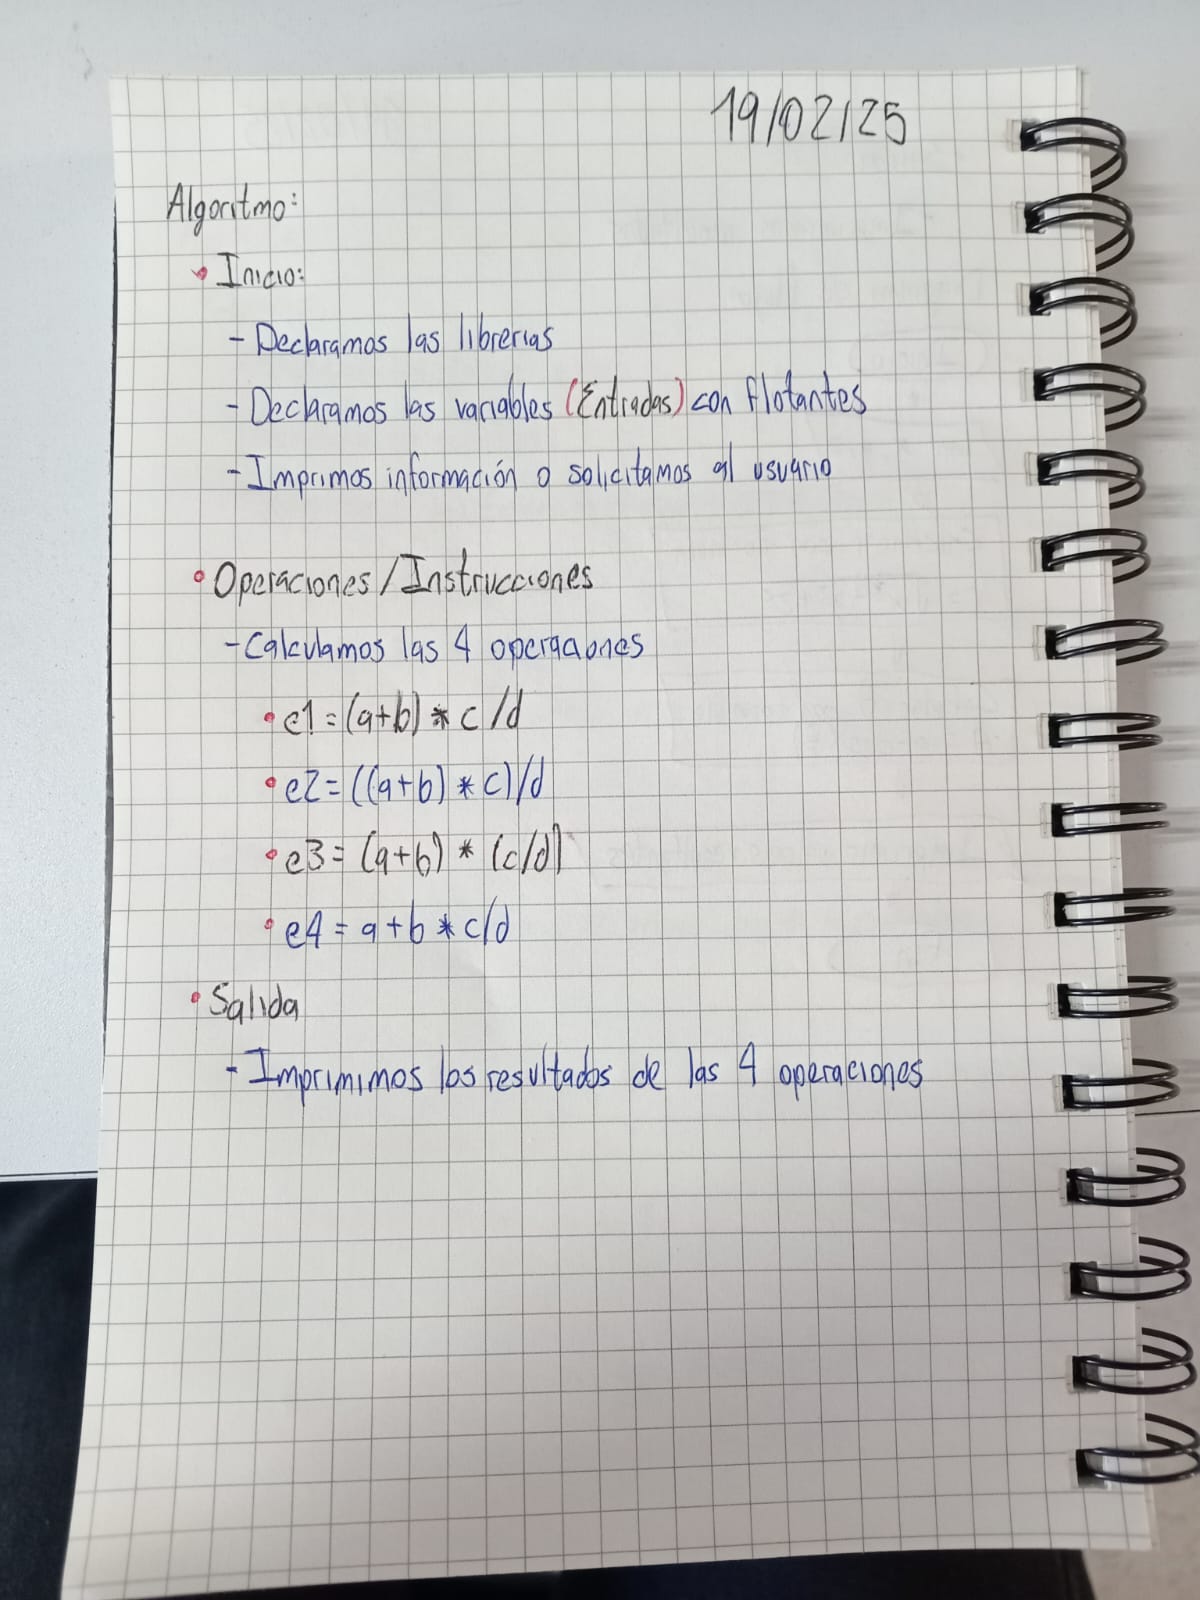 19/02/25
Algoritmo:
• Inicio:
- Declaramos las librerias
- Declaramos las variables (Entradas) con flotantes
- Imprimos información o solicitamos al usuario
• Operaciones/Instrucciones
- Calculamos las 4 operaciones
• e1 = (a+b) * c/d
• e2 = ((a+b) * c)/d
• e3 = (a+b) * (c/d)
• e4 = a+b * c/d
• Salida
- Imprimimos los resultados de las 4 operaciones